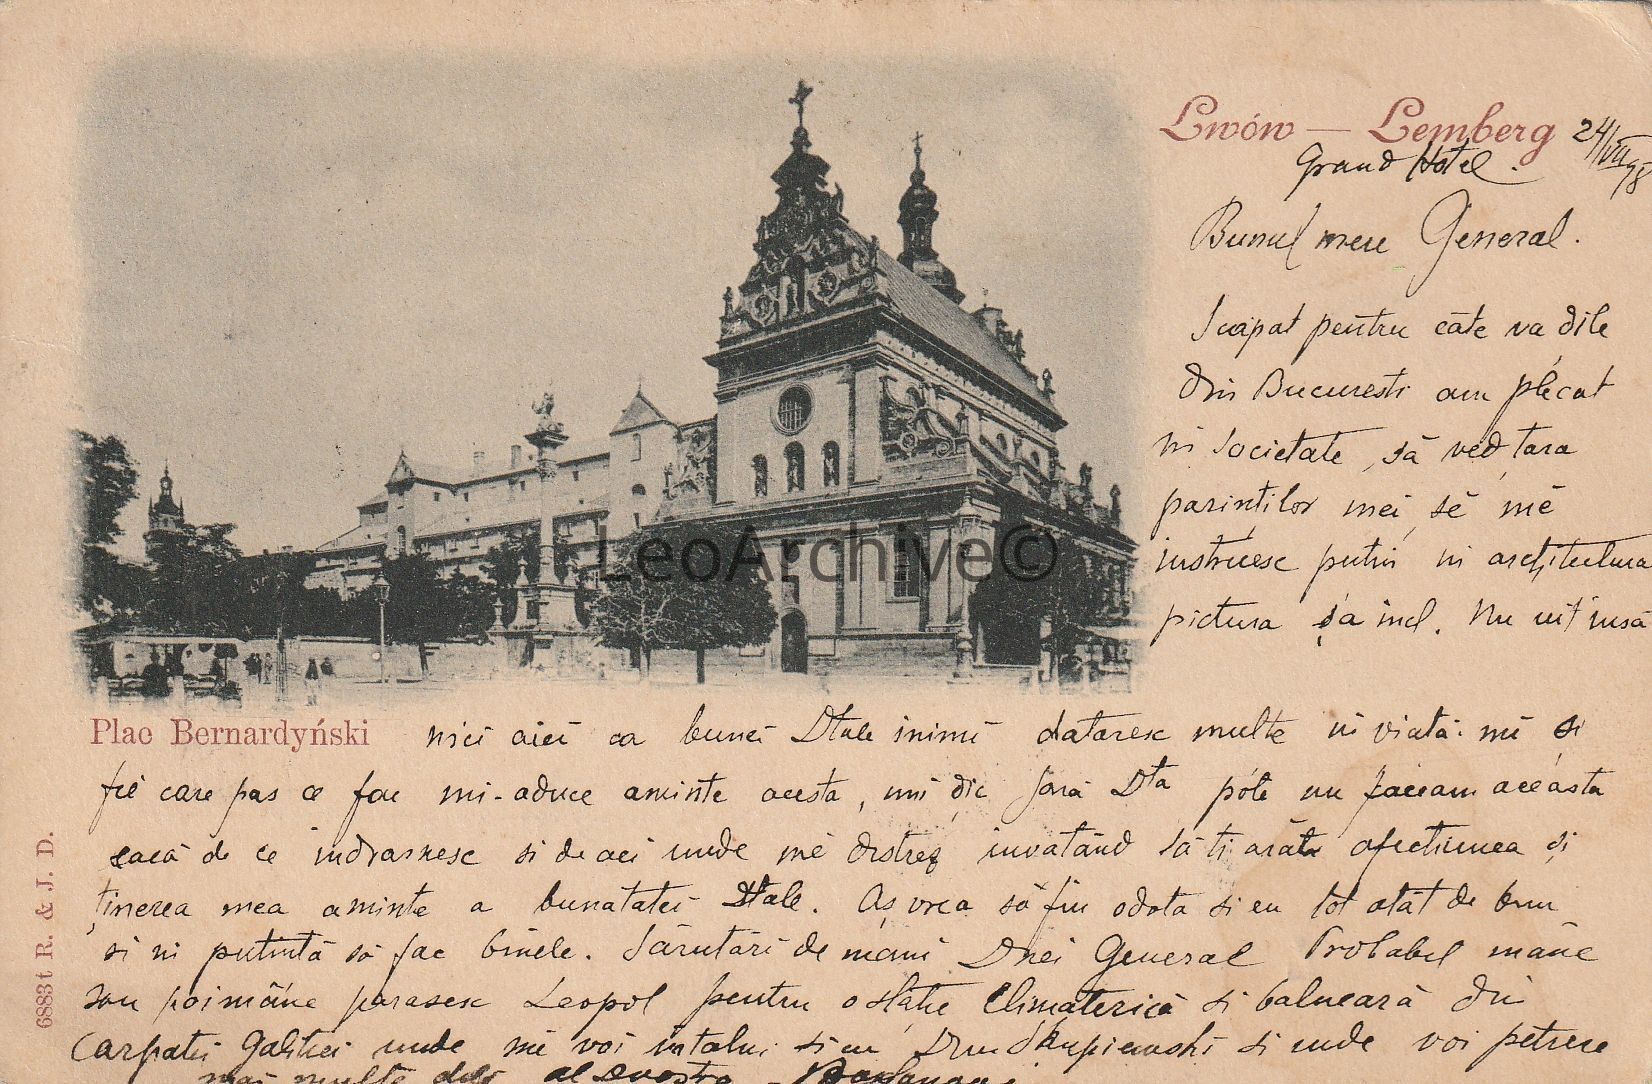 Lwów — Lemberg 24/VII 98
Grand Hotel.
Bunul meu General.
Scapat pentru câte va dile
din Bucuresti am plécat
in societate, să ved tara
parintilor mei, sĕ mĕ
instruesc putin in architectura
pictura șa incl. Nu uit insă
Plac Bernardyński nici aici ca bunei Dtale inimi datoresc multe in viată. mi si
fie care pas ce fac mi-aduce aminte acesta, imi dic fara Dta póte nu faceam acésta
eacă de ce indrasnesc si de aci unde mĕ distrez invatând să ti arăt afectiunea și
ținerea mea aminte a bunatatei Dtale. Aș vrea să fiu odata si eu tot atât de bun
si in putintă să fac binele. Sărutări de mani Dnei General Probabil mâne
sau poimâne parasesc Leopol pentru o statie climaterică si balneară din
Carpatii Galitiei unde mĕ voi intalni si cu Dnu Skupiewski si unde voi petrece
mai multe dile al Dvostra
LeoArchive©
6883t R. & J. D.